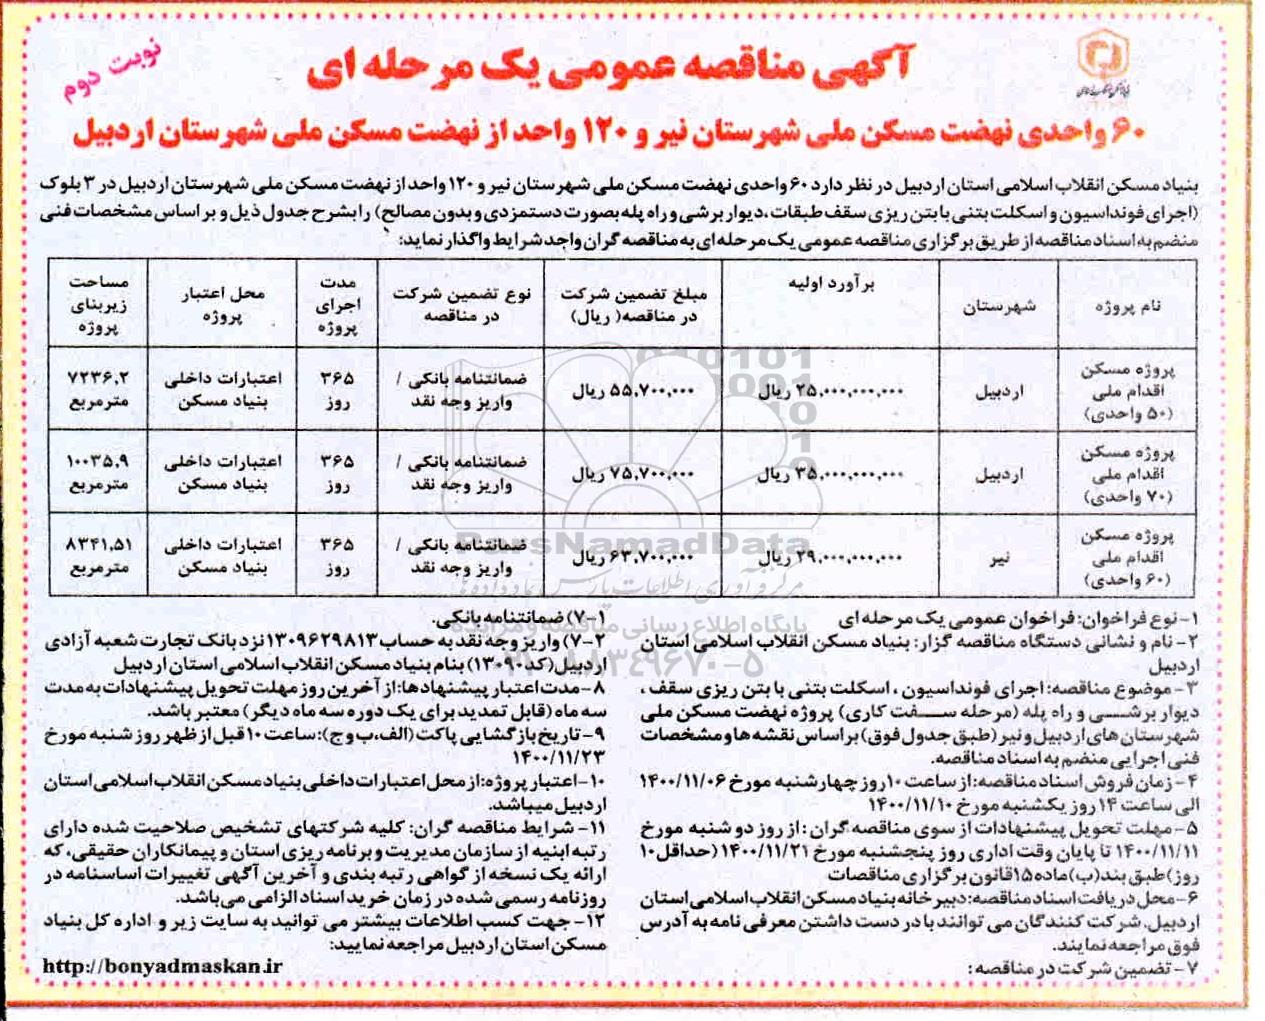 نوبت دوم
آگهی مناقصه عمومی یک مرحله ای
۶۰ واحدی نهضت مسکن ملی شهرستان نیر و ۱۲۰ واحد از نهضت مسکن ملی شهرستان اردبیل
بنیاد مسکن انقلاب اسلامی استان اردبیل در نظر دارد ۶۰ واحدی نهضت مسکن ملی شهرستان نیر و ۱۲۰ واحد از نهضت مسکن ملی شهرستان اردبیل در ۳ بلوک
(اجرای فونداسیون و اسکلت بتنی با بتن ریزی سقف طبقات، دیوار برشی و راه پله بصورت دستمزدی و بدون مصالح) را بشرح جدول ذیل و بر اساس مشخصات فنی
منضم به اسناد مناقصه از طریق برگزاری مناقصه عمومی یک مرحله ای به مناقصه گران واجد شرایط واگذار نماید:
نام پروژه | شهرستان | برآورد اولیه | مبلغ تضمین شرکت در مناقصه( ریال) | نوع تضمین شرکت در مناقصه | مدت اجرای پروژه | محل اعتبار پروژه | مساحت زیربنای پروژه
پروژه مسکن اقدام ملی (۵۰ واحدی) | اردبیل | ۲۵,۰۰۰,۰۰۰,۰۰۰ ریال | ۵۵,۷۰۰,۰۰۰ ریال | ضمانتنامه بانکی / واریز وجه نقد | ۳۶۵ روز | اعتبارات داخلی بنیاد مسکن | ۷۲۳۶,۲ مترمربع
پروژه مسکن اقدام ملی (۷۰ واحدی) | اردبیل | ۳۵,۰۰۰,۰۰۰,۰۰۰ ریال | ۷۵,۷۰۰,۰۰۰ ریال | ضمانتنامه بانکی / واریز وجه نقد | ۳۶۵ روز | اعتبارات داخلی بنیاد مسکن | ۱۰۰۳۵,۹ مترمربع
پروژه مسکن اقدام ملی (۶۰ واحدی) | نیر | ۲۹,۰۰۰,۰۰۰,۰۰۰ ریال | ۶۳,۷۰۰,۰۰۰ ریال | ضمانتنامه بانکی / واریز وجه نقد | ۳۶۵ روز | اعتبارات داخلی بنیاد مسکن | ۸۳۴۱,۵۱ مترمربع
ParsNamadData
مرکز فرآوری اطلاعات پارس نماد داده ها
پایگاه اطلاع رسانی مناقصه و مزایده
۸۸۳۴۹۶۷۰-۵
۱- نوع فراخوان: فراخوان عمومی یک مرحله ای
۲- نام و نشانی دستگاه مناقصه گزار: بنیاد مسکن انقلاب اسلامی استان
اردبیل
۳- موضوع مناقصه: اجرای فونداسیون ، اسکلت بتنی با بتن ریزی سقف ،
دیوار برشی و راه پله (مرحله سفت کاری) پروژه نهضت مسکن ملی
شهرستان های اردبیل و نیر (طبق جدول فوق) بر اساس نقشه ها و مشخصات
فنی اجرایی منضم به اسناد مناقصه.
۴- زمان فروش اسناد مناقصه: از ساعت ۱۰ روز چهارشنبه مورخ ۱۴۰۰/۱۱/۰۶
الی ساعت ۱۴ روز یکشنبه مورخ ۱۴۰۰/۱۱/۱۰
۵- مهلت تحویل پیشنهادات از سوی مناقصه گران : از روز دو شنبه مورخ
۱۴۰۰/۱۱/۱۱ تا پایان وقت اداری روز پنجشنبه مورخ ۱۴۰۰/۱۱/۲۱ (حداقل ۱۰
روز) طبق بند (ب) ماده ۱۵ قانون برگزاری مناقصات
۶- محل دریافت اسناد مناقصه: دبیر خانه بنیاد مسکن انقلاب اسلامی استان
اردبیل. شرکت کنندگان می توانند با در دست داشتن معرفی نامه به آدرس
فوق مراجعه نمایند.
۷- تضمین شرکت در مناقصه :
۷-۱) ضمانتنامه بانکی.
۷-۲) واریز وجه نقد به حساب ۱۳۰۹۶۲۹۸۱۳ نزد بانک تجارت شعبه آزادی
اردبیل (کد ۱۳۰۹۰) بنام بنیاد مسکن انقلاب اسلامی استان اردبیل
۸- مدت اعتبار پیشنهادها: از آخرین روز مهلت تحویل پیشنهادات به مدت
سه ماه (قابل تمدید برای یک دوره سه ماه دیگر) معتبر باشد.
۹- تاریخ بازگشایی پاکت (الف، ب و ج): ساعت ۱۰ قبل از ظهر روز شنبه مورخ
۱۴۰۰/۱۱/۲۳
۱۰- اعتبار پروژه: از محل اعتبارات داخلی بنیاد مسکن انقلاب اسلامی استان
اردبیل میباشد.
۱۱- شرایط مناقصه گران: کلیه شرکتهای تشخیص صلاحیت شده دارای
رتبه ابنیه از سازمان مدیریت و برنامه ریزی استان و پیمانکاران حقیقی، که
ارائه یک نسخه از گواهی رتبه بندی و آخرین آگهی تغییرات اساسنامه در
روزنامه رسمی شده در زمان خرید اسناد الزامی می‌باشد.
۱۲- جهت کسب اطلاعات بیشتر می توانید به سایت زیر و اداره کل بنیاد
مسکن استان اردبیل مراجعه نمایید:
http://bonyadmaskan.ir